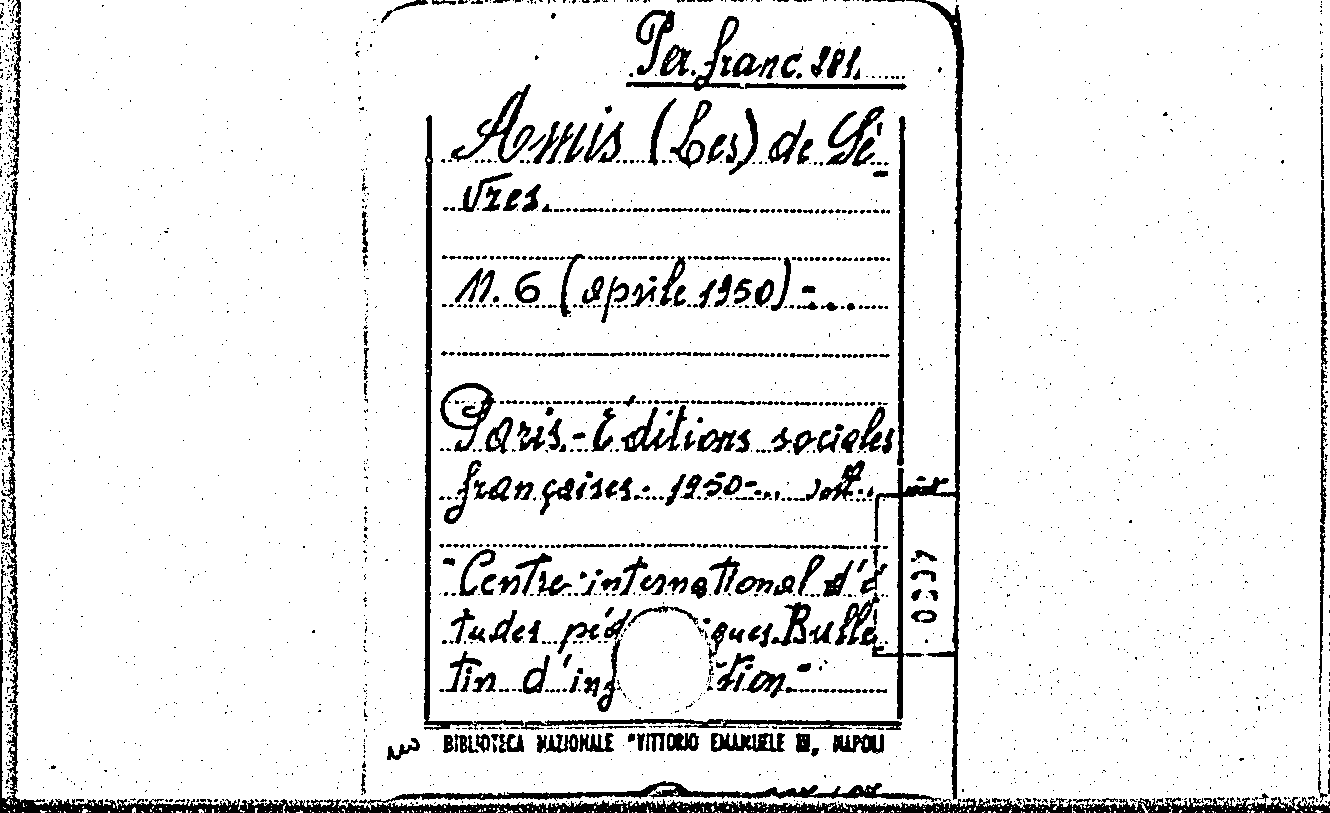 Per. franc. 281.
Amis (Les) de Sè-
vres.
N. 6 (aprile 1950)-...
Paris.- Éditions sociales
françaises. 1950-...
"Centre international d'é
tudes péd igues. Bulle
tin d'inf tion."
BIBLIOTECA NAZIONALE "VITTORIO EMANUELE III, NAPOLI